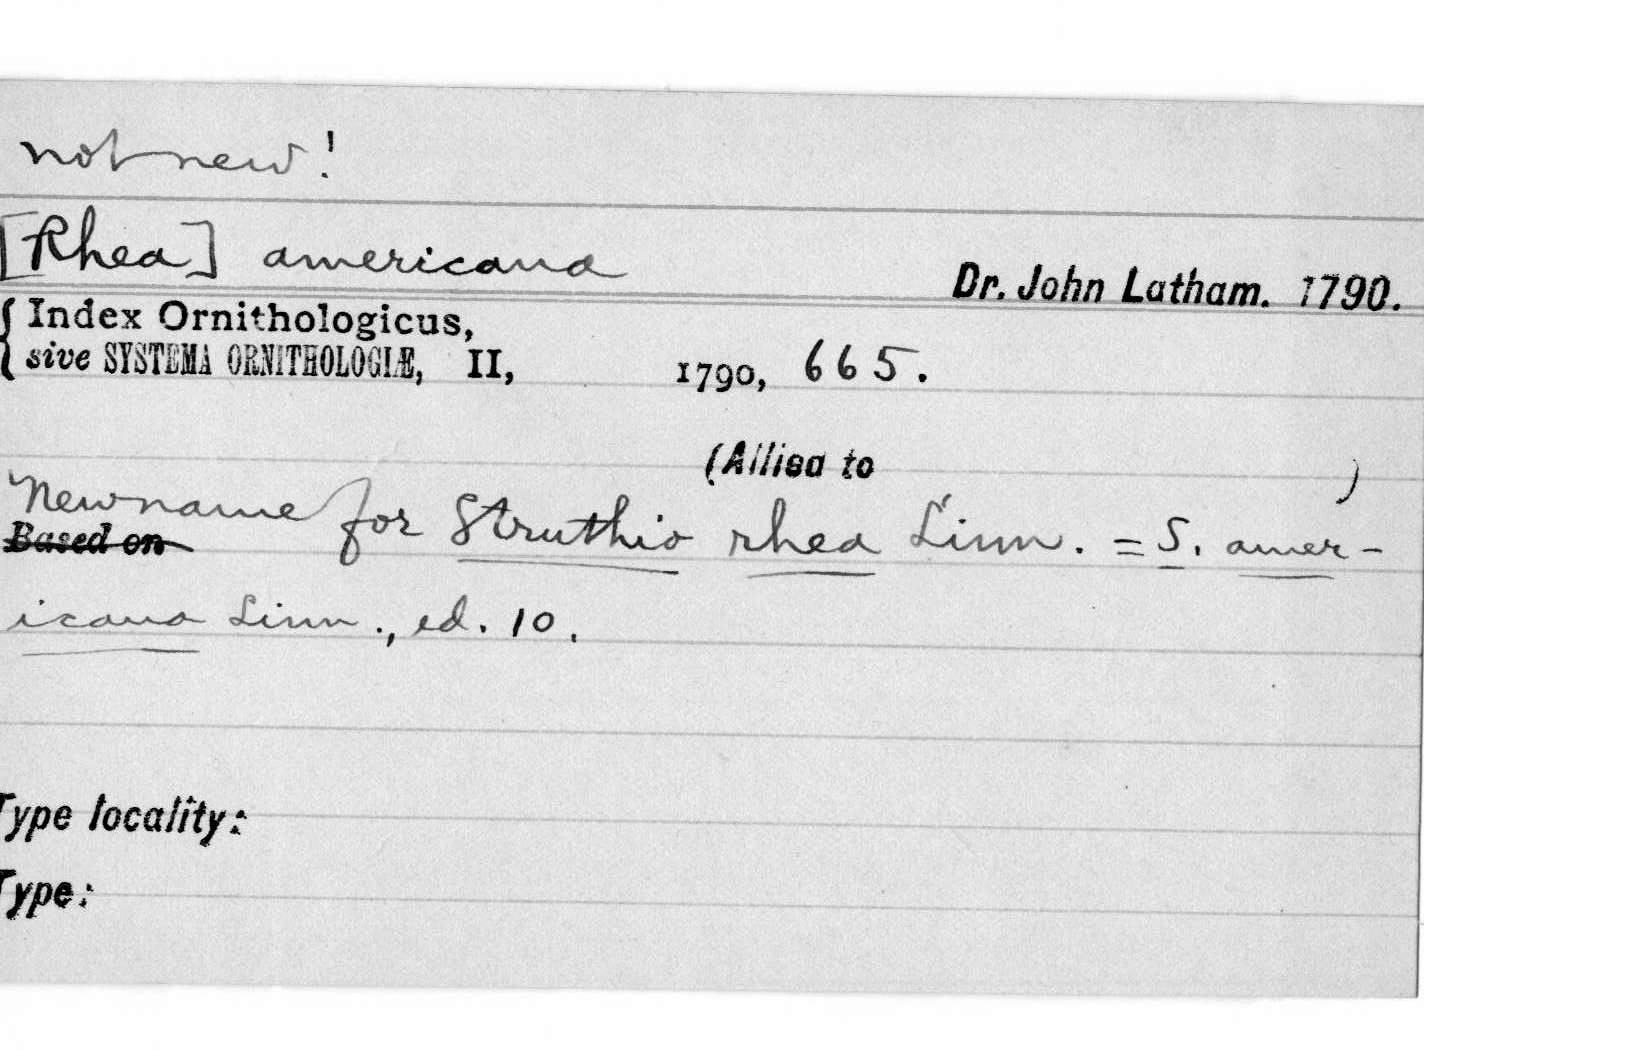 not new!
[Rhea] americana
Dr. John Latham. 1790.
Index Ornithologicus,
sive SYSTEMA ORNITHOLOGIÆ, II, 1790, 665.
(Allied to )
New name for Struthio rhea Linn. = S. amer-
Based on
icana Linn., ed. 10.
Type locality:
Type: